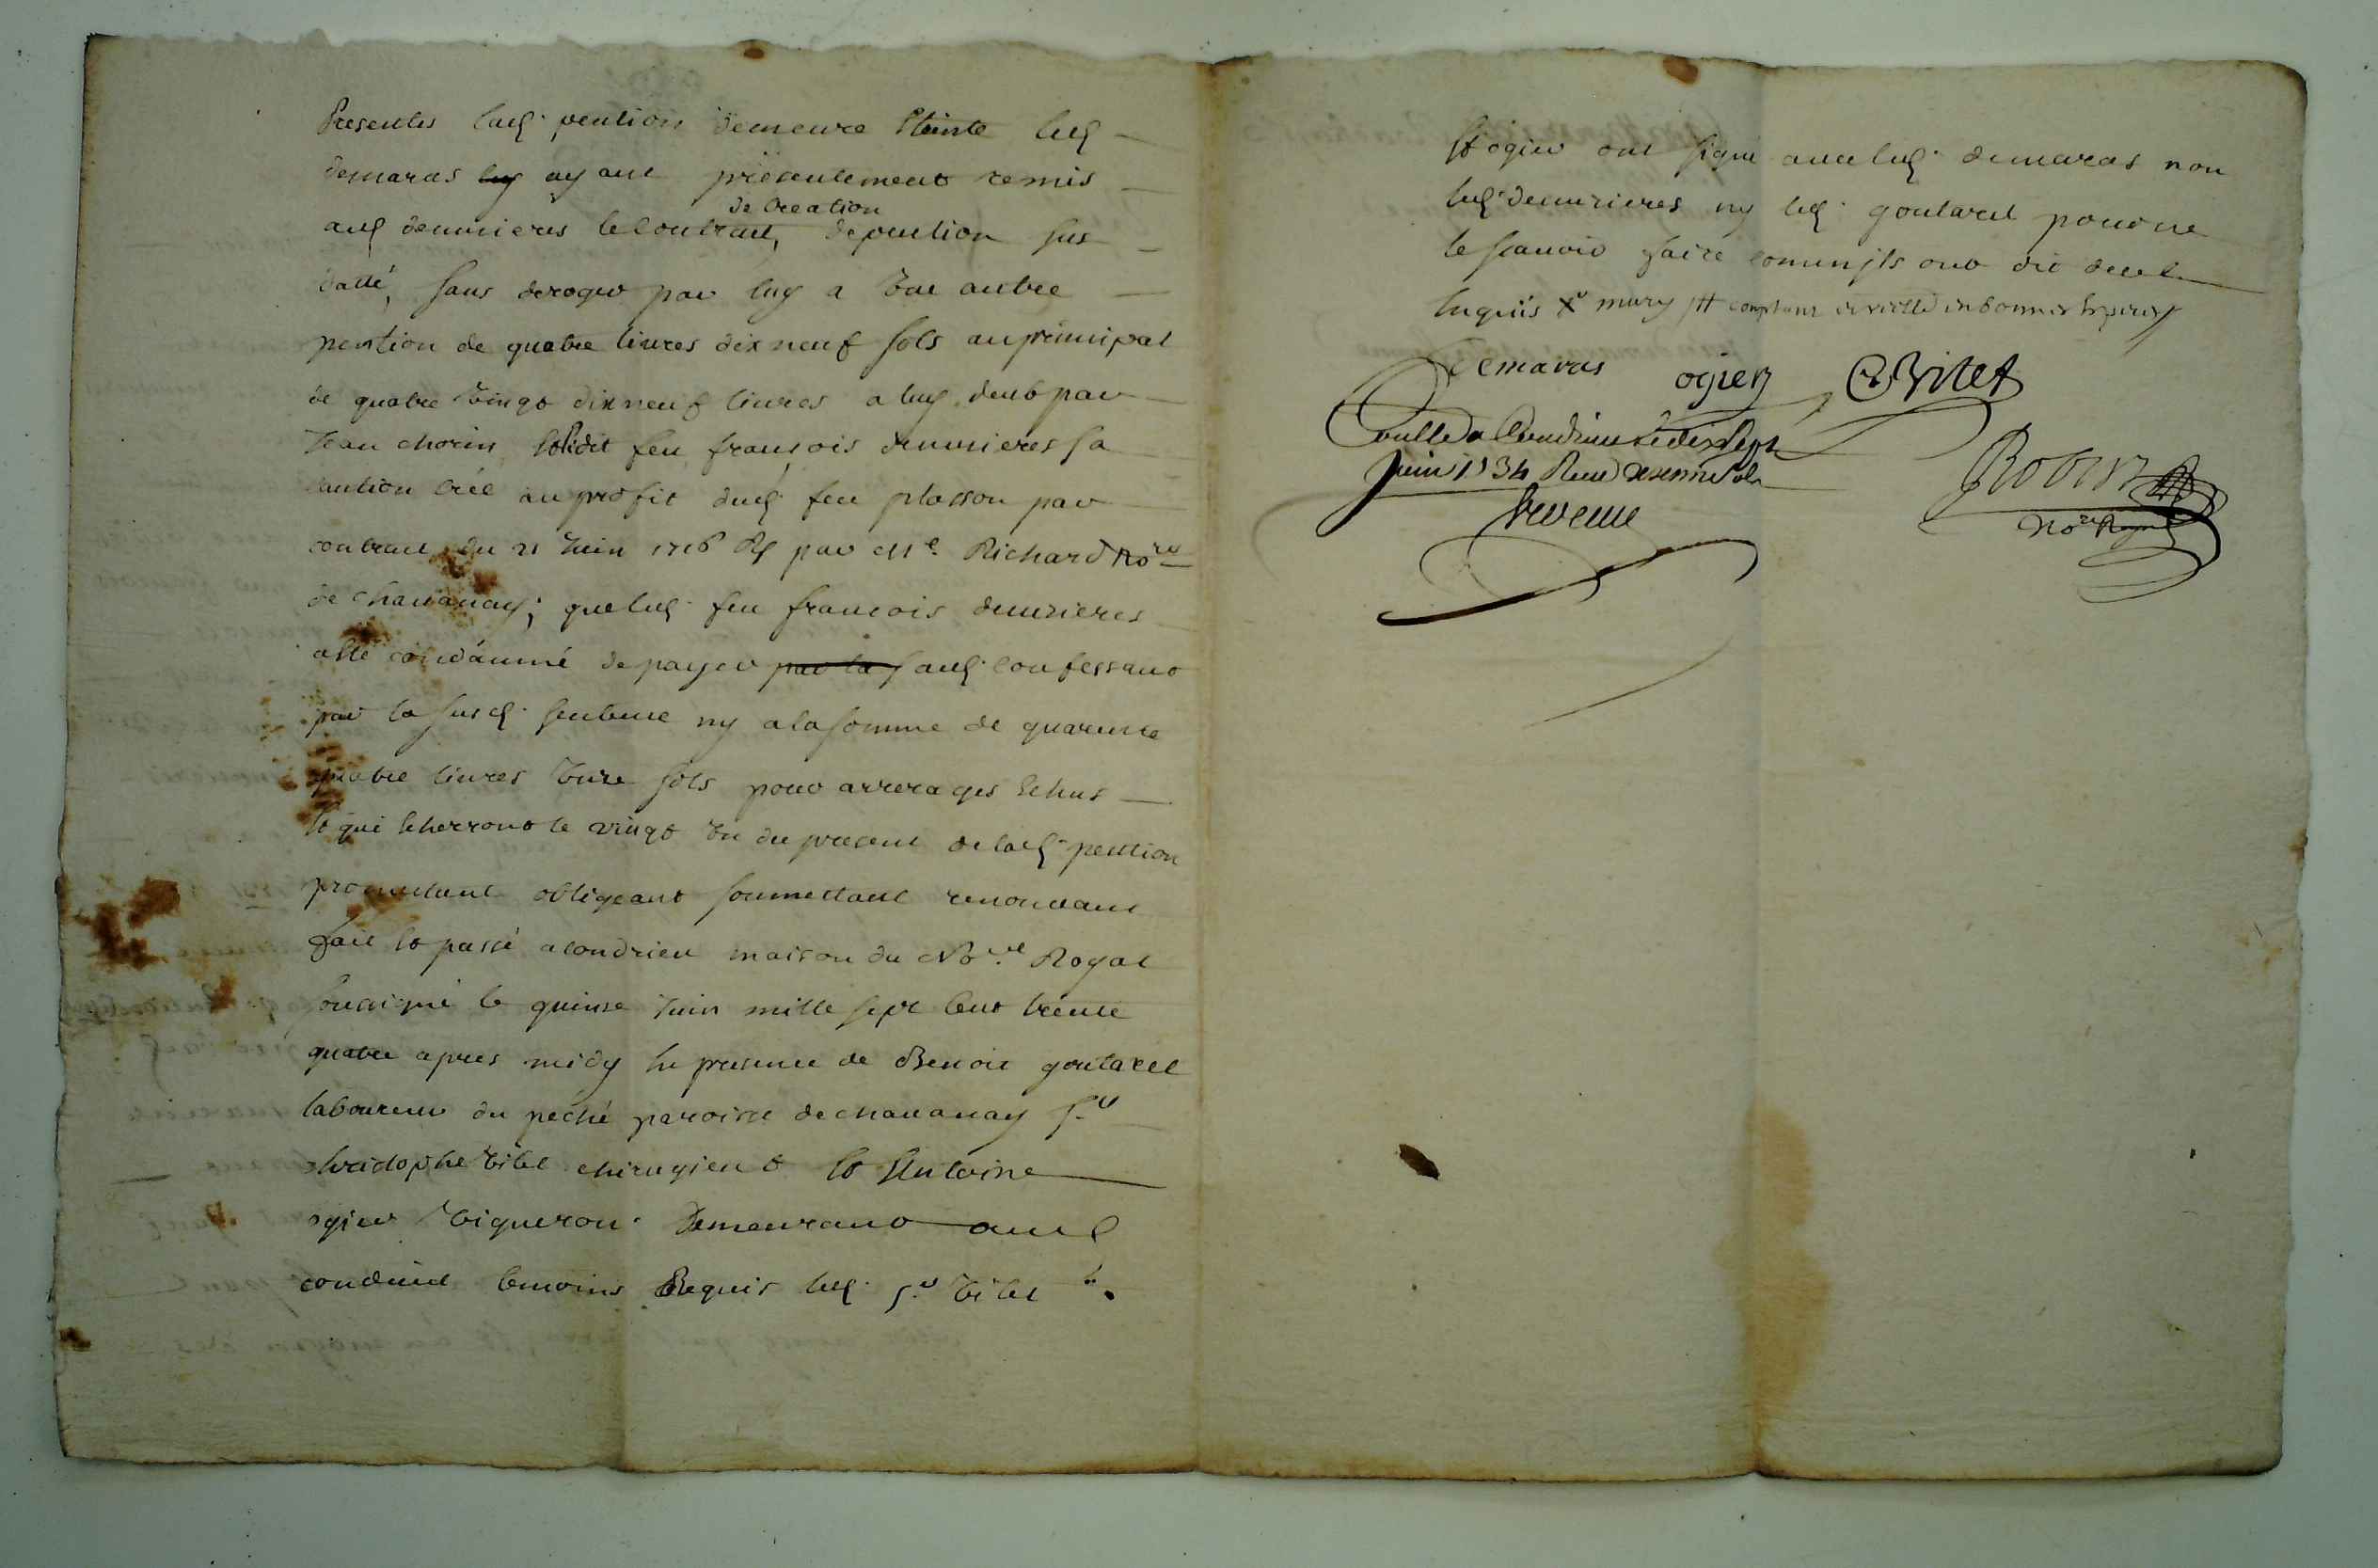 presentes lad. pention demeure Eteinte led.
demaras luy ayant présentement remis
aud. demurieres le Contract de Creation de pention sus
datté, sans deroger par luy a une autre
pention de quatre livres dix neuf sols au principal
de quatre vingt dix neuf livres a luy deub par
Jean chorin Et ledit feu françois demurieres sa
caution créé au profit dud. feu plasson par
contract du 21 Juin 1716 Rs par Me. Richard No.re
de chavanay; que led. feu francois demurieres
a été condamné de payer par la aud. confessant
par la susd. sentence ny a la somme de quarente
quatre livres unze sols pour arrerages Echus
Et qui Echerront le vingt un du present de lad. pention
promettant obligeant soumettant renoncant
fait Et passé a condrieu maison du No.re Royal
sousigné le quinze Juin mille sept cent trente
quatre apres midy En presence de Benoit goutarel
laboureur du peché paroisse de chavanay s.r
christophe vitet chirugient Et Antoine
ogier vigneron demeurant aud.
condrieu temoins Requis led. s.r vitet
Et ogier ont signé avec led. demaras non
led. demurieres ny led. goutarel pour ne
le scavoir faire comm'ils ont dit de ce
Enquis
Demaras ogier C Vitet
Conllé a Condrieu le dix sept
Juin 1734 Receu
Robin
No.re Royal